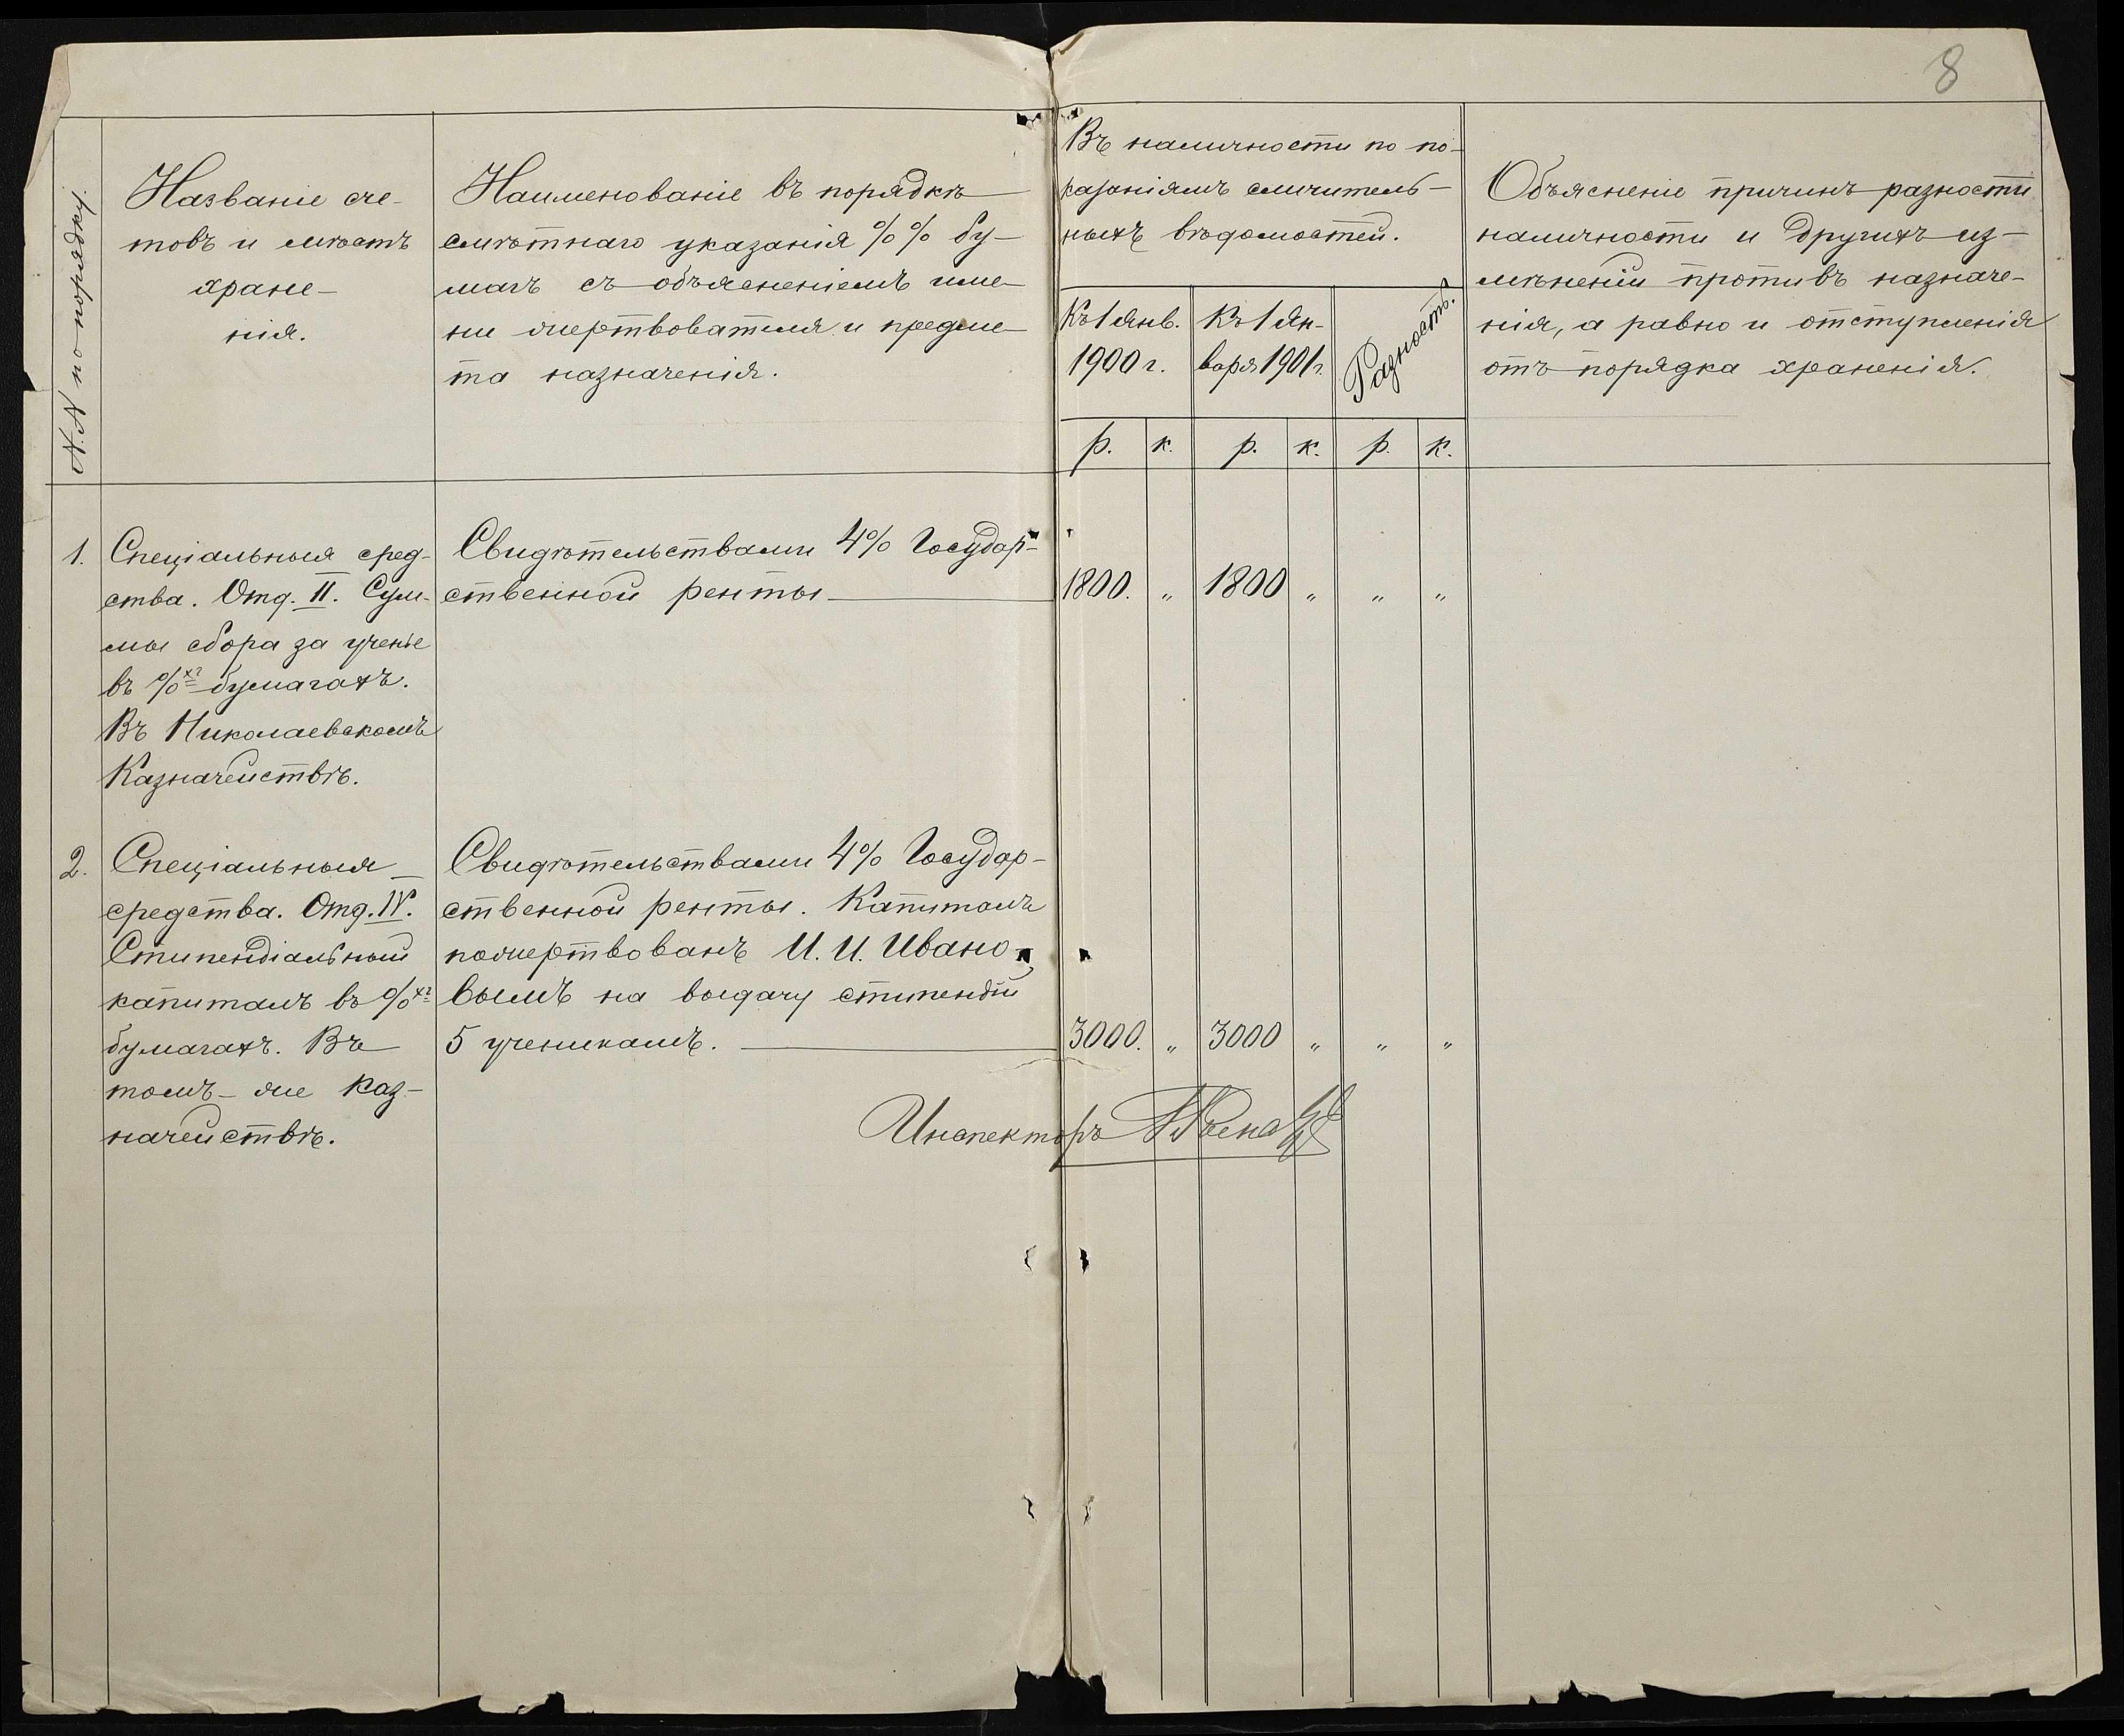 8
N.N по порядку.
Названіе сче-
товъ и мѣстъ
хране-
нія.
Наименованіе въ порядкѣ
смѣтнаго указанія %% бу-
магъ съ объясненіемъ име-
ни жертвователя и предме-
та назначенія.
Въ наличности по по-
казаніямъ сличитель-
ныхъ вѣдомостей.
Къ 1 Янв.
1900 г.
Къ 1 Ян-
варя 1901 г.
Разность.
р. к. р. к. р. к.
Объясненіе причинъ разности
наличности и другихъ из-
мѣненій противъ назначе-
нія, а равно и отступленія
отъ порядка храненія.
1. Спеціальныя сред-
ства. Отд. II. Сум-
мы сбора за ученье
въ %хъ бумагахъ.
Въ Николаевскомъ
Казначействѣ.
Свидѣтельствами 4% Государ-
ственной ренты 1800. „ 1800 „ „ „
2. Спеціальныя
средства. Отд. IV.
Стипендіальный
капиталъ въ %хъ
бумагахъ. Въ
томъ-же Каз-
начействѣ.
Свидѣтельствами 4% Государ-
ственной ренты. Капиталъ
пожертвованъ И. И. Ивано-
вымъ на выдачу стипендій
5 ученикамъ. 3000. „ 3000 „ „ „
Инспекторъ